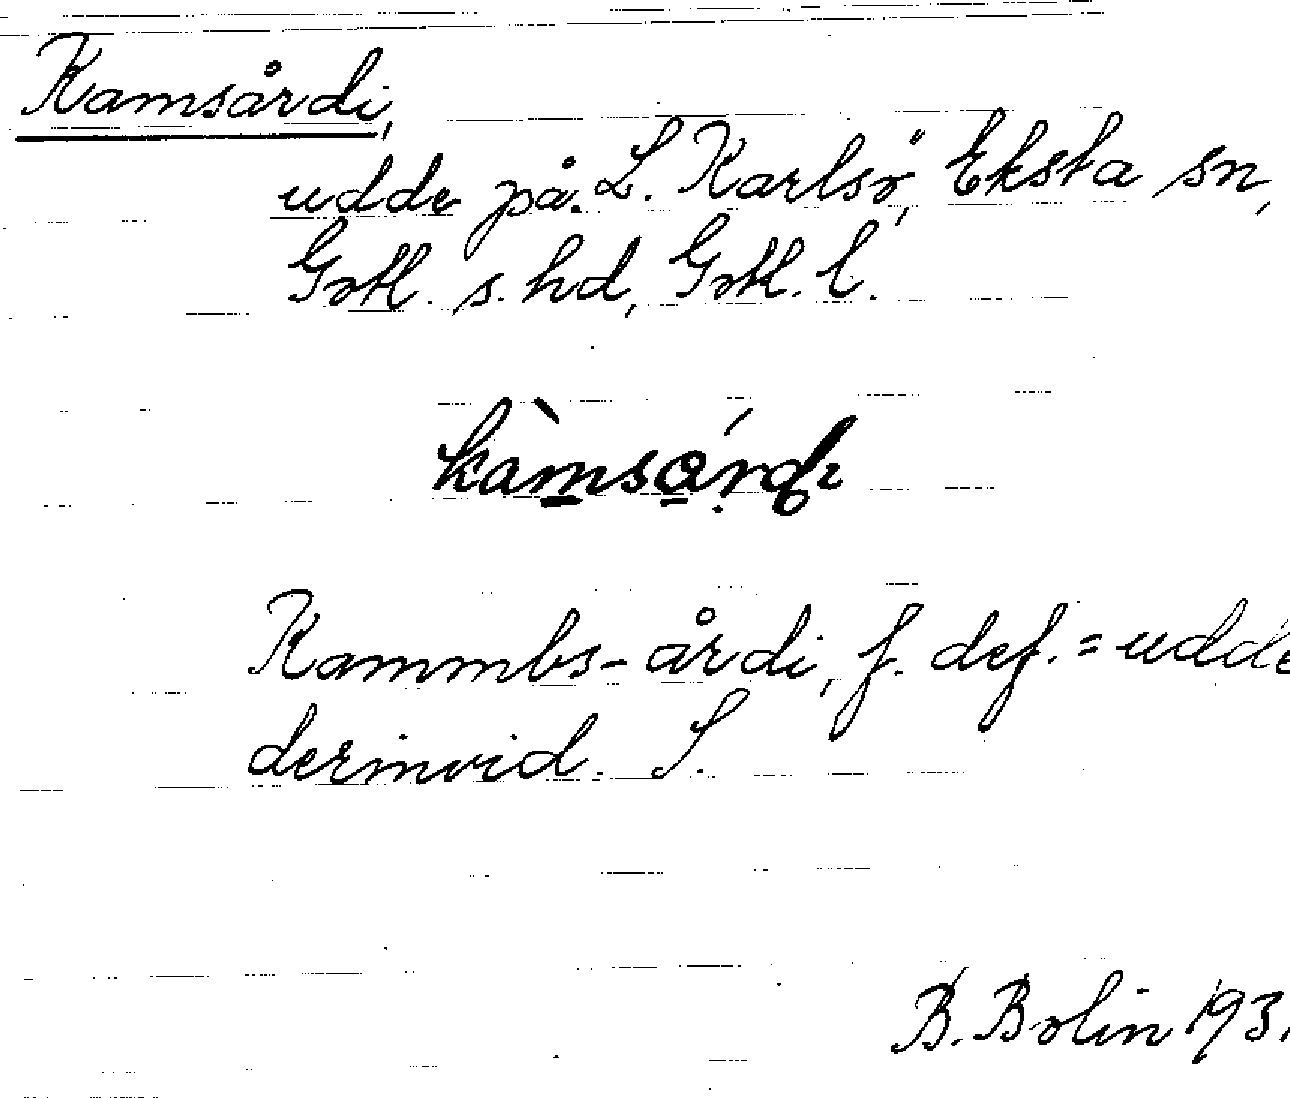 Kamsårdi,
udde på L. Karlsö, Eksta sn,
Gotl. s. hd, Gotl. l.
kàmsárdi
Kammbs-årdi, f. def. = udde
derinvid. S.
B. Bolin 193